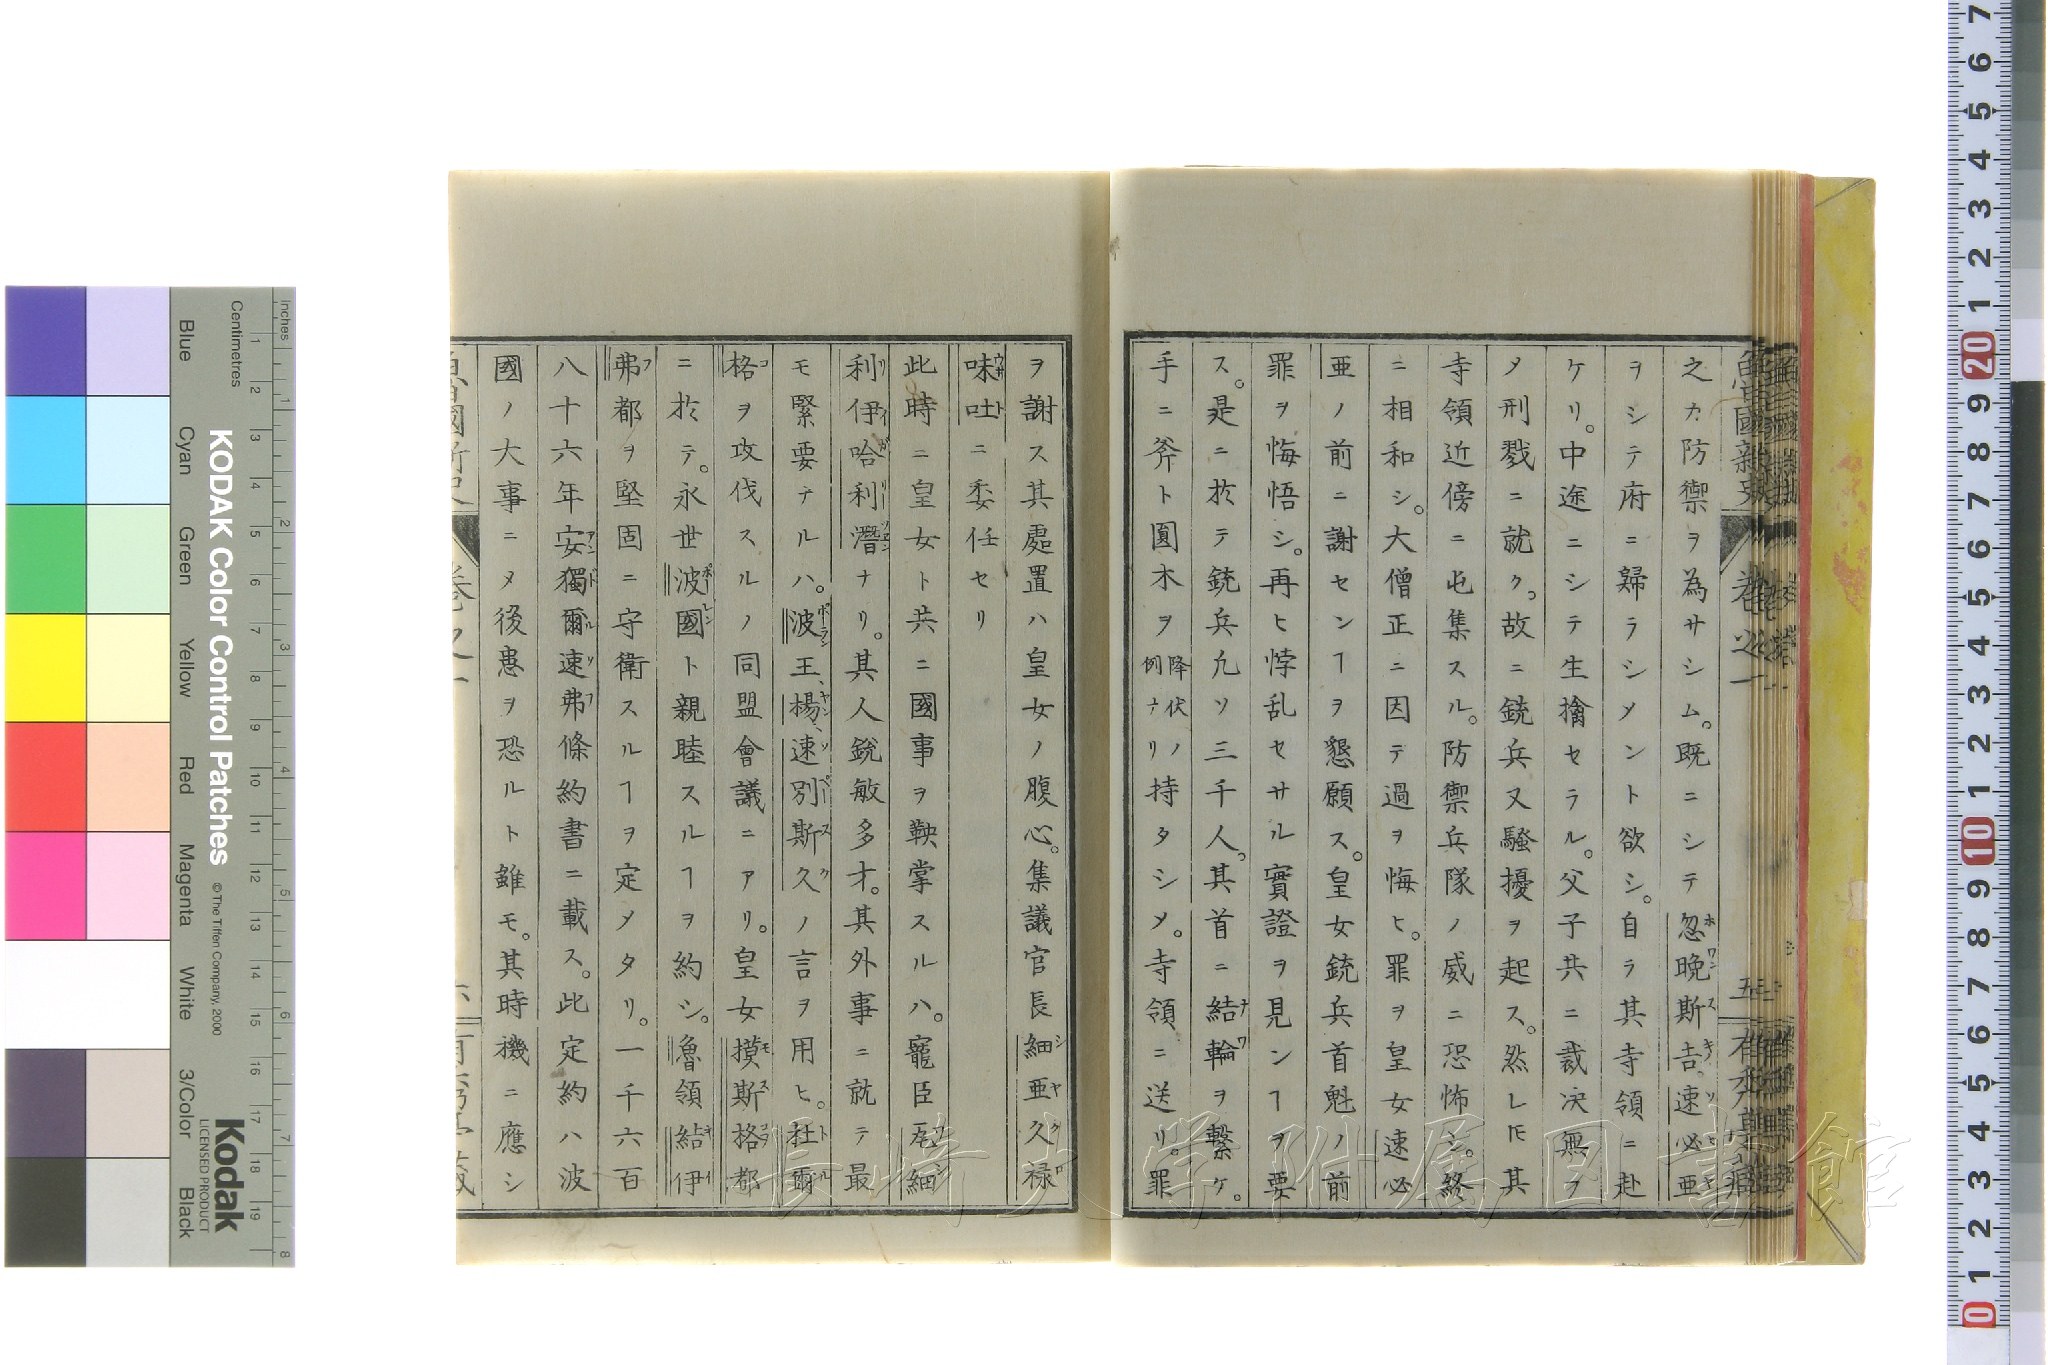 之カ防禦ヲ為サシム。既ニシテ忽晩斯吉速必亜
ヲシテ府ニ歸ラシメント欲シ。自ラ其寺領ニ赴
ケリ。中途ニシテ生擒セラル。父子共ニ裁决無ク
メ刑戮ニ就ク。故ニ銃兵又騒擾ヲ起ス。然レ𪜈其
寺領近傍ニ屯集スル。防禦兵隊ノ威ニ恐怖シ。終
ニ相和シ。大僧正ニ因テ過ヲ悔ヒ。罪ヲ皇女速必
亜ノ前ニ謝センヿヲ懇願ス。皇女銃兵首魁ノ前
罪ヲ悔悟シ。再ヒ悖乱セサル實證ヲ見ンヿヲ要
ス。是ニ於テ銃兵凡ソ三千人。其首ニ結輪ヲ繫ケ。
手ニ斧ト圓木ヲ降伏ノ例ナリ持タシメ。寺領ニ送リ。罪
ヲ謝ス其處置ハ皇女ノ腹心。集議官長細亜久禄
味吐ニ委任セリ
此時ニ皇女ト共ニ國事ヲ鞅掌スルハ。寵臣瓦細
利伊哈利潛ナリ。其人銳敏多才。其外事ニ就テ最
モ緊要ナルハ。波王、楊、速別斯久ノ言ヲ用ヒ。杜爾
格ヲ攻伐スルノ同盟會議ニアリ。皇女摸斯格都
ニ於テ。永世波國ト親睦スルヿヲ約シ。魯領結伊
弗都ヲ堅固ニ守衛スルヿヲ定メタリ。一千六百
八十六年安獨爾速弗條約書ニ載ス。此定約ハ波
國ノ大事ニメ後患ヲ恐ルト雖モ。其時機ニ應シ
長崎大学附属図書館
KODAK Color Control Patches
© The Tiffen Company, 2000
Kodak
LICENSED PRODUCT
Inches
Centimetres
Blue
Cyan
Green
Yellow
Red
Magenta
White
3/Color
Black